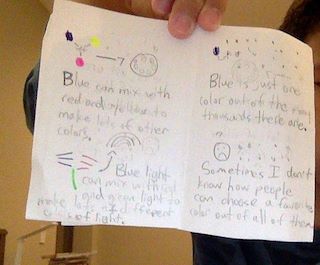 Blue can mix with
red and yellow to
make lots of other
colors.
Blue light
can mix with red
light and green light to
make lots of different
colors of light.
Blue is just one
color out of the
thousands there are.
Sometimes I don't
know how people
can choose a favorite
color out of all of them